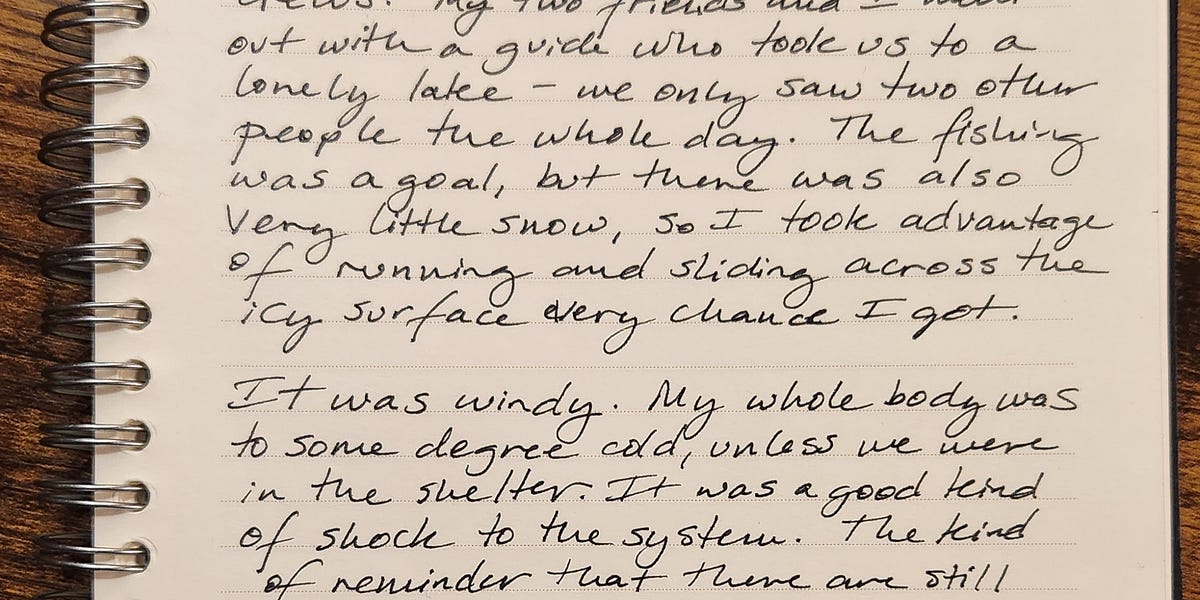 crews. My two friends and I went
out with a guide who took us to a
lonely lake – we only saw two other
people the whole day. The fishing
was a goal, but there was also
very little snow, so I took advantage
of running and sliding across the
icy surface every chance I got.
It was windy. My whole body was
to some degree cold, unless we were
in the shelter. It was a good kind
of shock to the system. The kind
of reminder that there are still